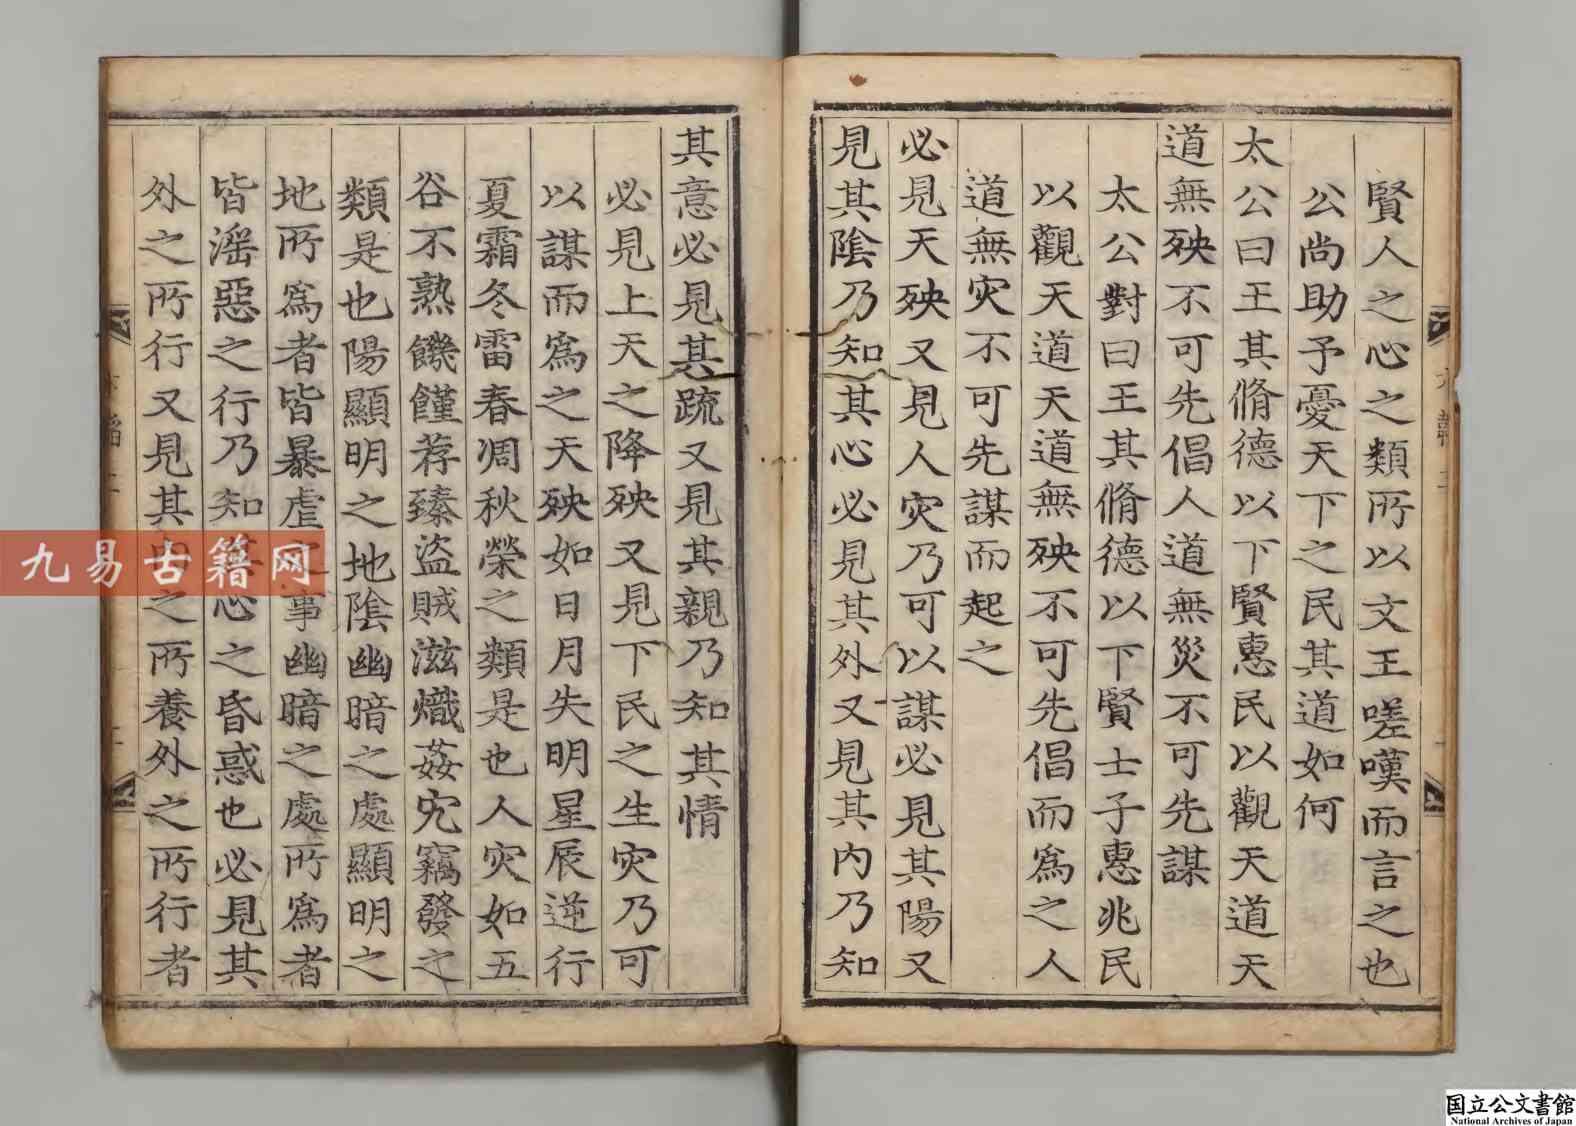 賢人之心之類所以文王嗟嘆而言之也
公尚助予憂天下之民其道如何
太公曰王其脩德以下賢惠民以觀天道天
道無殃不可先倡人道無災不可先謀
太公對曰王其脩德以下賢士子惠兆民
以觀天道天道無殃不可先倡而爲之人
道無灾不可先謀而起之
必見天殃又見人灾乃可以謀必見其陽又
見其隂乃知其心必見其外又見其内乃知
其意必見其疏又見其親乃知其情
必見上天之降殃又見下民之生灾乃可
以謀而爲之天殃如日月失明星辰逆行
夏霜冬雷春凋秋榮之類是也人灾如五
谷不熟饑饉荐臻盜賊滋熾姦宄竊發之
類是也陽顯明之地隂幽暗之處顯明之
地所爲者皆暴虐事幽暗之處所爲者
皆滛惡之行乃知心之昏惑也必見其
外之所行又見其之所養外之所行者
九易古籍网
国立公文書館
National Archives of Japan